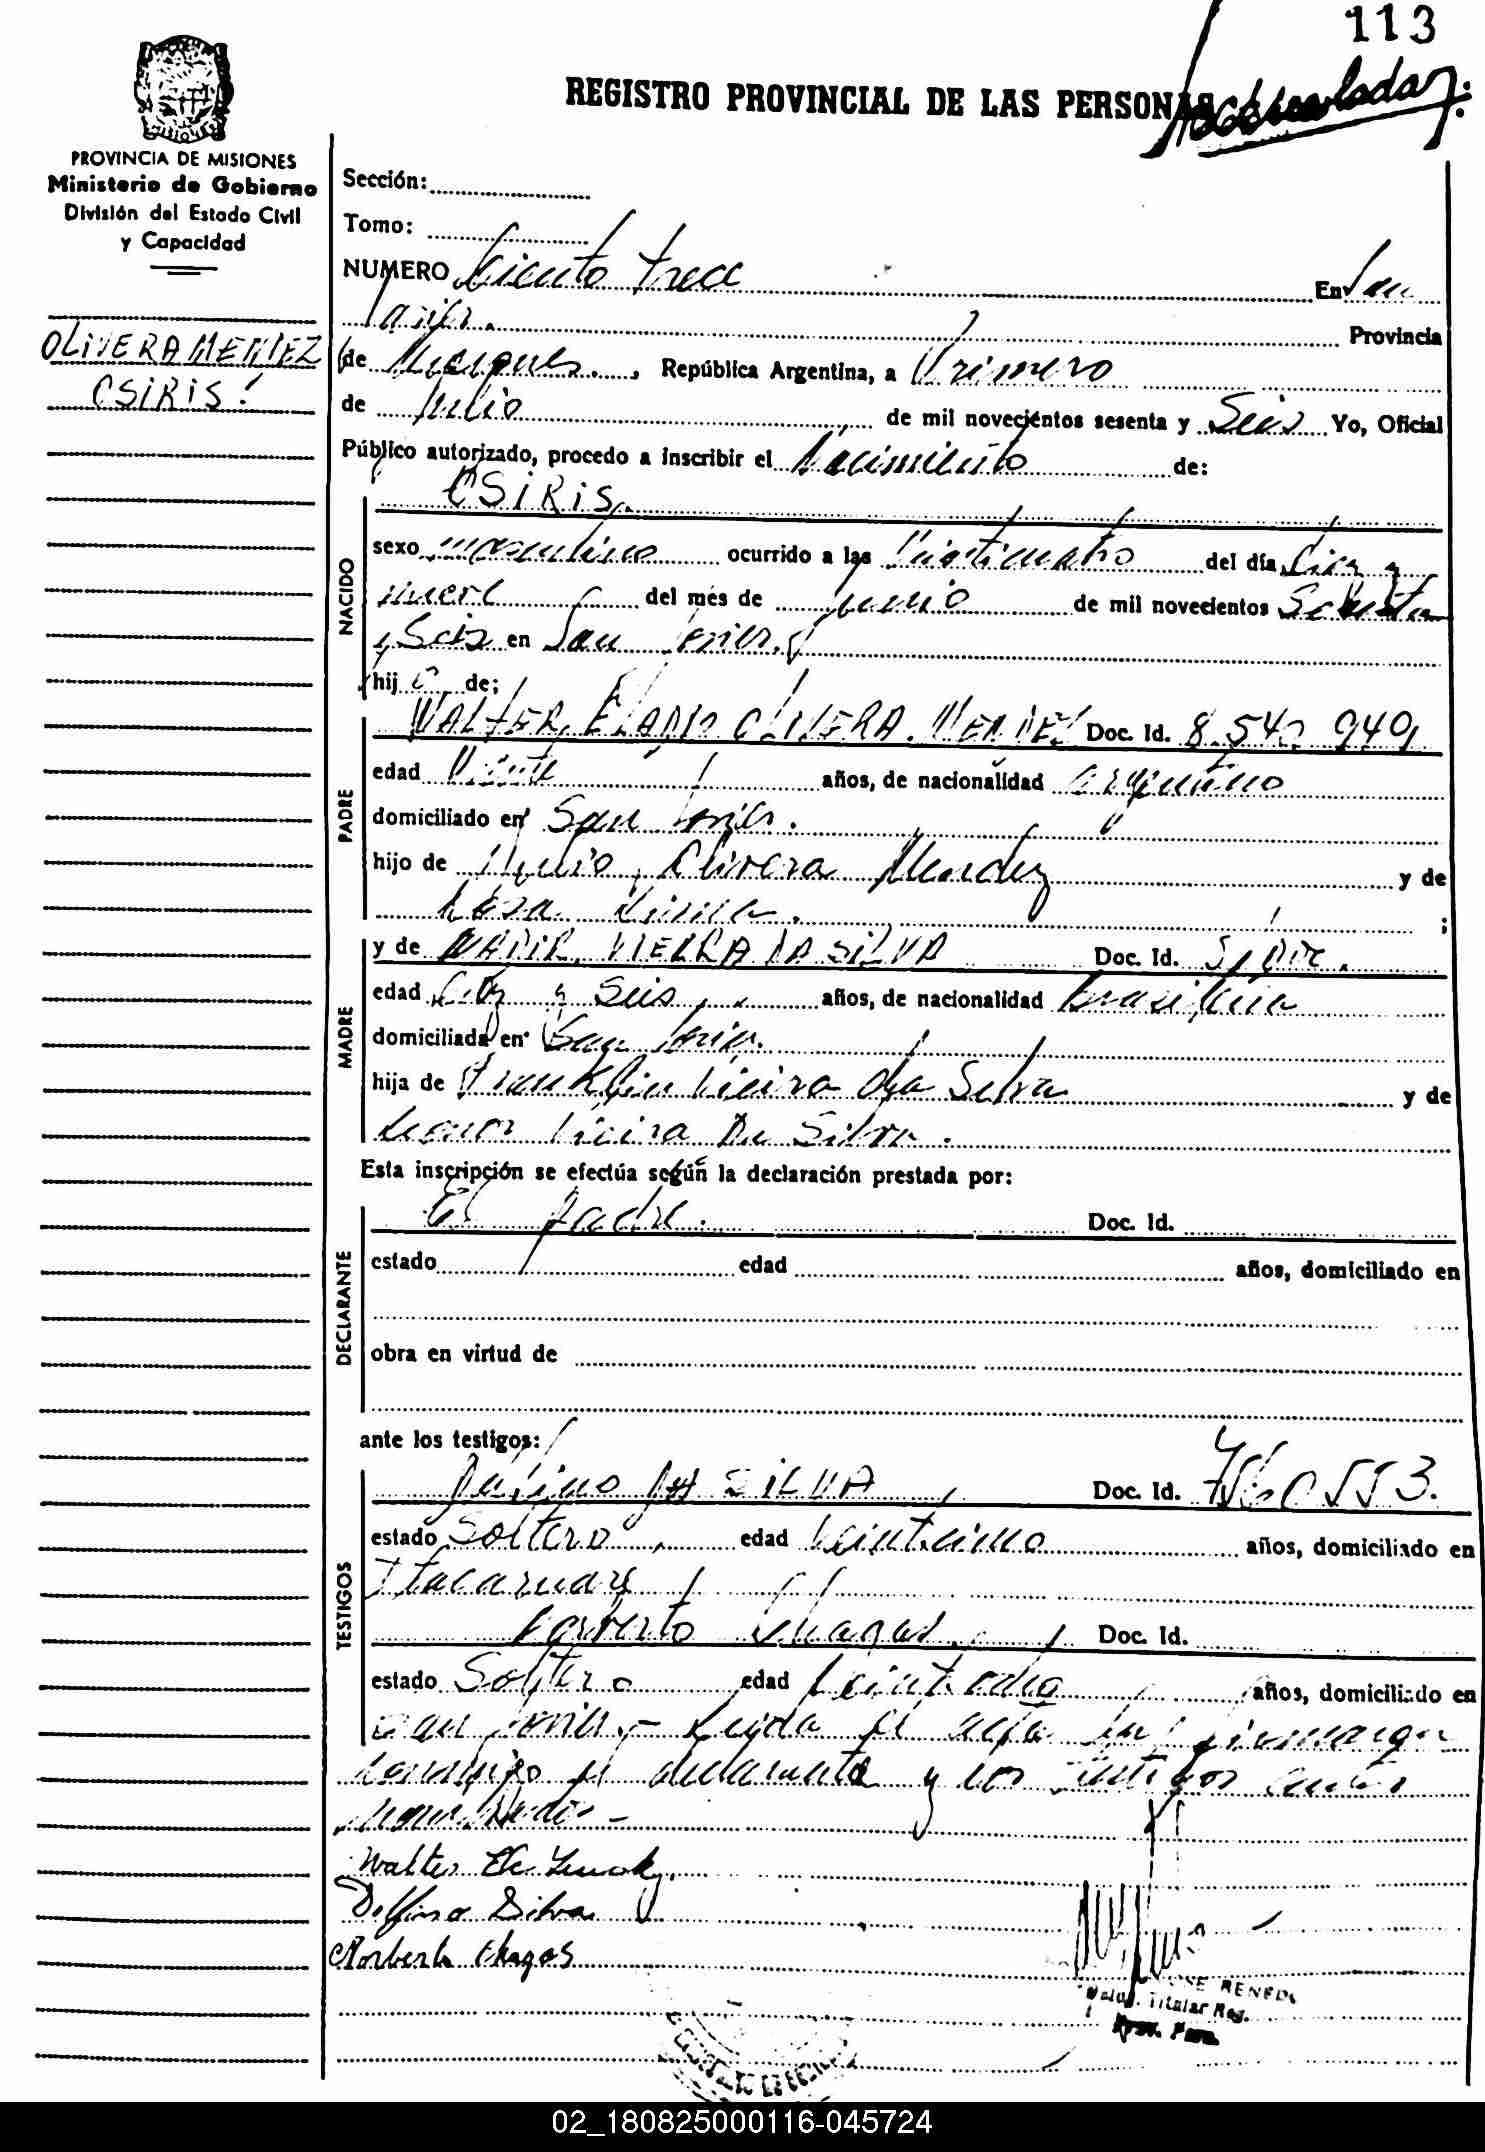 113
REGISTRO PROVINCIAL DE LAS PERSONAS
PROVINCIA DE MISIONES
Ministerio de Gobierno
División del Estado Civil
y Capacidad
OLIVERA MENDEZ
OSIRIS
Sección:
Tomo:
NUMERO Ciento trece En San
Javier. Provincia
de Misiones, República Argentina, a Primero
de Julio de mil novecientos sesenta y Seis Yo, Oficial
Público autorizado, procedo a inscribir el Nacimiento de:
NACIDO
OSIRIS.
sexo masculino ocurrido a las Veinticuatro del día Diez y
nueve del mes de junio de mil novecientos Sesenta
y Seis en San Javier.
hijo de;
PADRE
WALTER ELADIO OLIVERA MENDEZ Doc. Id. 8.542.949
edad Veinte años, de nacionalidad argentino
domiciliado en San Javier.
hijo de Julio Olivera Mendez y de
;
MADRE
y de VIEIRA DA SILVA Doc. Id.
edad Diez y Seis años, de nacionalidad brasileña
domiciliada en San Javier.
hija de Franklin Vieira da Silva y de
Leonor Vieira Da Silva.
Esta inscripción se efectúa según la declaración prestada por:
DECLARANTE
El padre. Doc. Id.
estado edad años, domiciliado en
obra en virtud de
ante los testigos:
TESTIGOS
DA SILVA Doc. Id. 7560553.
estado Soltero, edad años, domiciliado en
Itacaruaré
Norberto Chagas, Doc. Id.
estado Soltero edad Veintiocho años, domiciliado en
San Javier.- Leida el acta la
conmigo el declarante y los testigos antes
Walter
Delfino Silva
Norberto Chagas
02_180825000116-045724